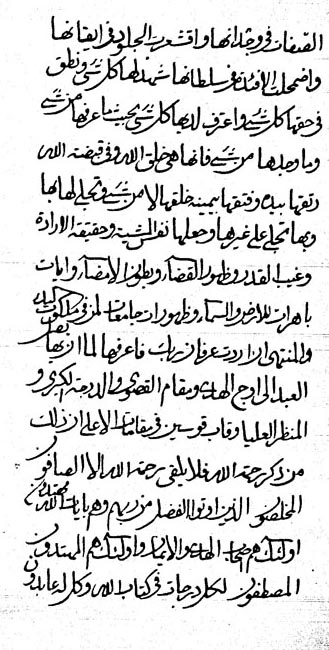 الصفات في وجدانها واقشعرت الجلود في ايقانها
واضمحلت الافئدة في سلطانها شهد لها كل شئ ونطق
في حقها كل شئ واعرف لديها كل شئ بحيث ما عرفها من شئ
وما وجدها من شئ فانها هي خلق الله وفي قبضة الله
رتقها بيده وفتقها بيمينه خلقها لا من شئ وتجلى لها بها
وبها تجلى على غيرها وجعلها نفس المشية وحقيقة الارادة
وغيب القدر وظهور القضاء وبطون الامضاء وايات
باهرات للارض والسماء وظهورات جامعات لمن في ملكوت
والمنتهى ان اردت عرفان ربك فاعرفها لما ان بها
العبد الى اوج الهاء ومقام القصوى والدرجة الكبرى و
المنظر العليا وقاب قوسين في مقامات الاعلى ان ذلك
من ذكر رحمة الله فلا يلقى رحمة الله الا الصافون
المخلصون الذين اوتوا الفضل من ربهم وهم بايات الله
اولئك هم اصحاب والايمان واولئك هم المهتدون
المصطفون لكل درجات في كتاب الله وكل له عابدون